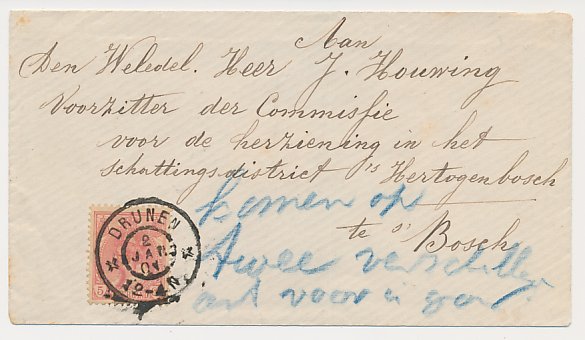 Aan
Den Weledel. Heer J. Houwing
Voorzitter der Commissie
voor de herziening in het
schattingsdistrict 's Hertogenbosch
te 's Bosch
komen op
twee
voor
DRUNEN
2
JAN
01
12-4N
5